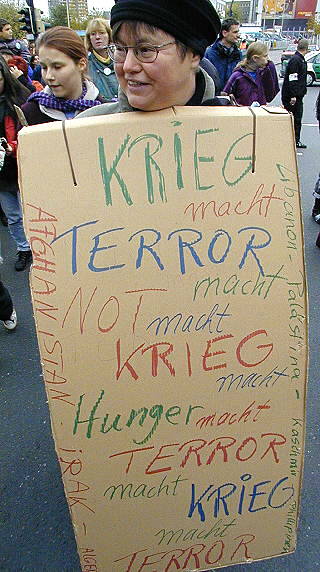 KRIEG
macht
TERROR
macht
NOT macht
KRIEG
macht
Hunger macht
TERROR
macht KRIEG
macht
TERROR
AFGHANISTAN
iRAK -
Libanon - Palästina - Kaschmir
Philippines